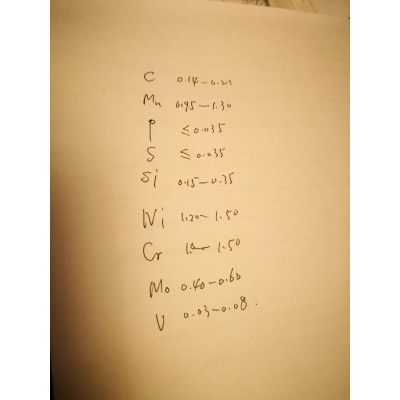 C 0.14-0.21
Mn 0.95-1.30
P ≤0.035
S ≤0.035
Si 0.15-0.35
Ni 1.20-1.50
Cr 1.50
Mo 0.40-0.60
V 0.03-0.08.